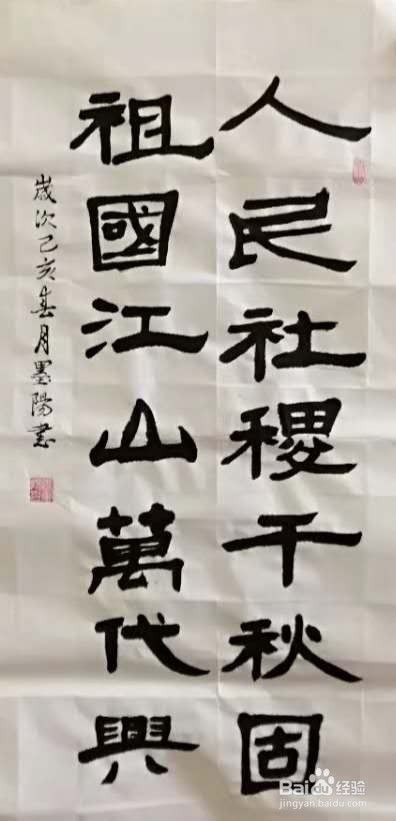 人民社稷千秋固
祖國江山萬代興
歲次己亥春月墨陽書
Baidu经验
jingyan.baidu.com